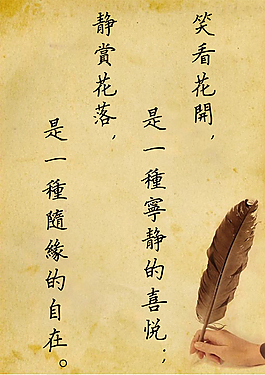 笑看花開，
是一種寧静的喜悦；
静賞花落，
是一種隨緣的自在。